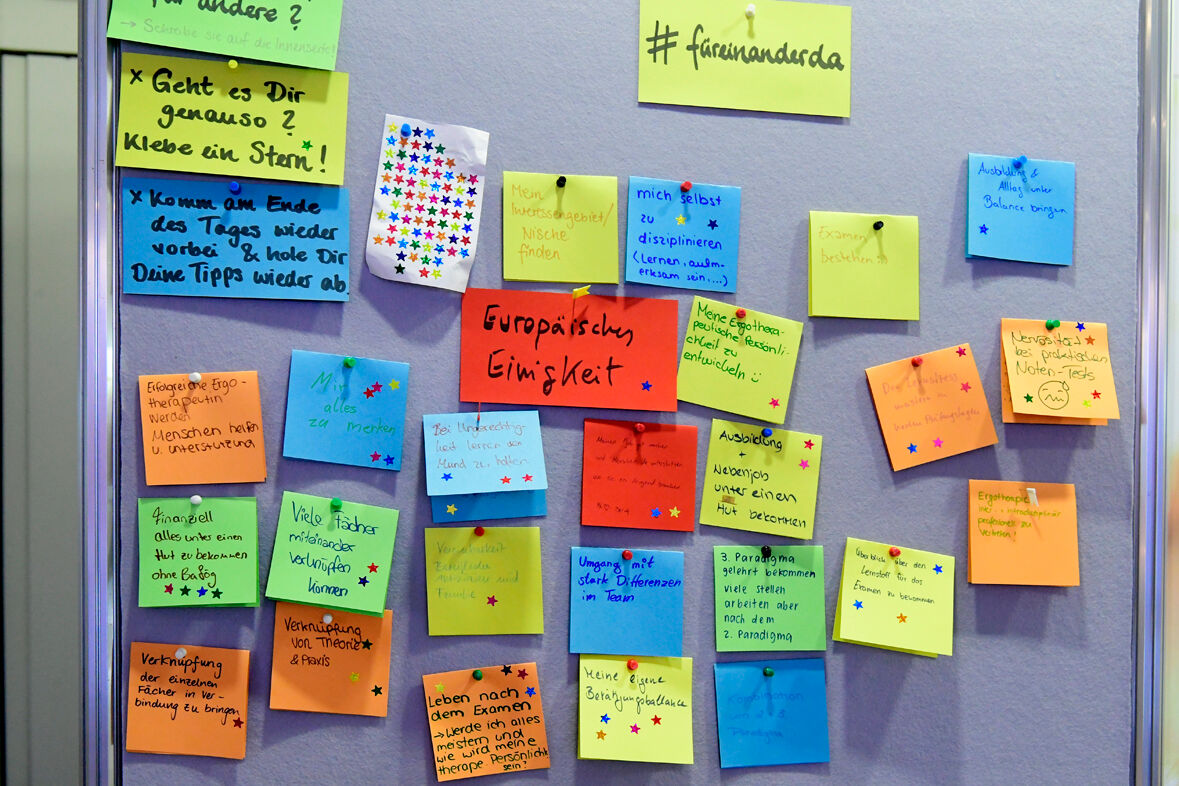 für andere?
→ Schreibe sie auf die Innenseite!
x Geht es Dir
genauso?
Klebe ein Stern!
x Komm am Ende
des Tages wieder
vorbei & hole Dir
Deine Tipps wieder ab.
# füreinanderda
Mein
Interessengebiet/
Nische
finden
mich selbst
zu
disziplinieren
(Lernen, aufm-
erksam sein,...)
Examen
bestehen
Ausbildung &
Alltag unter
Balance bringen
Europäischen
Einigkeit
Meine Ergothera-
peutische Persönli-
chkeit zu
entwickeln
Nervosität
bei praktischen
Noten-Tests
Erfolgreiche Ergo-
therapeutin
werden
Menschen helfen
u. unterstützung
Mir
alles
zu merken
Bei Ungerechtig-
keit lernen den
Mund zu halten
Ausbildung
+
Nebenjob
unter einen
Hut bekommen
Finanziell
alles unter einen
Hut zu bekommen
ohne Bafög
Viele Fächer
miteinander
verknüpfen
können
Vereinbarkeit
und
Familie
Umgang mit
stark Differenzen
im Team
3. Paradigma
gelehrt bekommen
viele stellen
arbeiten aber
nach dem
2. Paradigma
Überblick über den
Lernstoff für das
Examen zu bekommen
Ergotherapie
professionell zu
vertreten!
Verknüpfung
der einzelnen
Fächer in Ver-
bindung zu bringen
Verknüpfung
von Theorie
& Praxis
Leben nach
dem Examen
→ Werde ich alles
meistern und
wie wird meine
therape Persönlichk.
sein?
Meine eigene
Betätigungsballance
Kombination
von 2 & 3
Paradigma